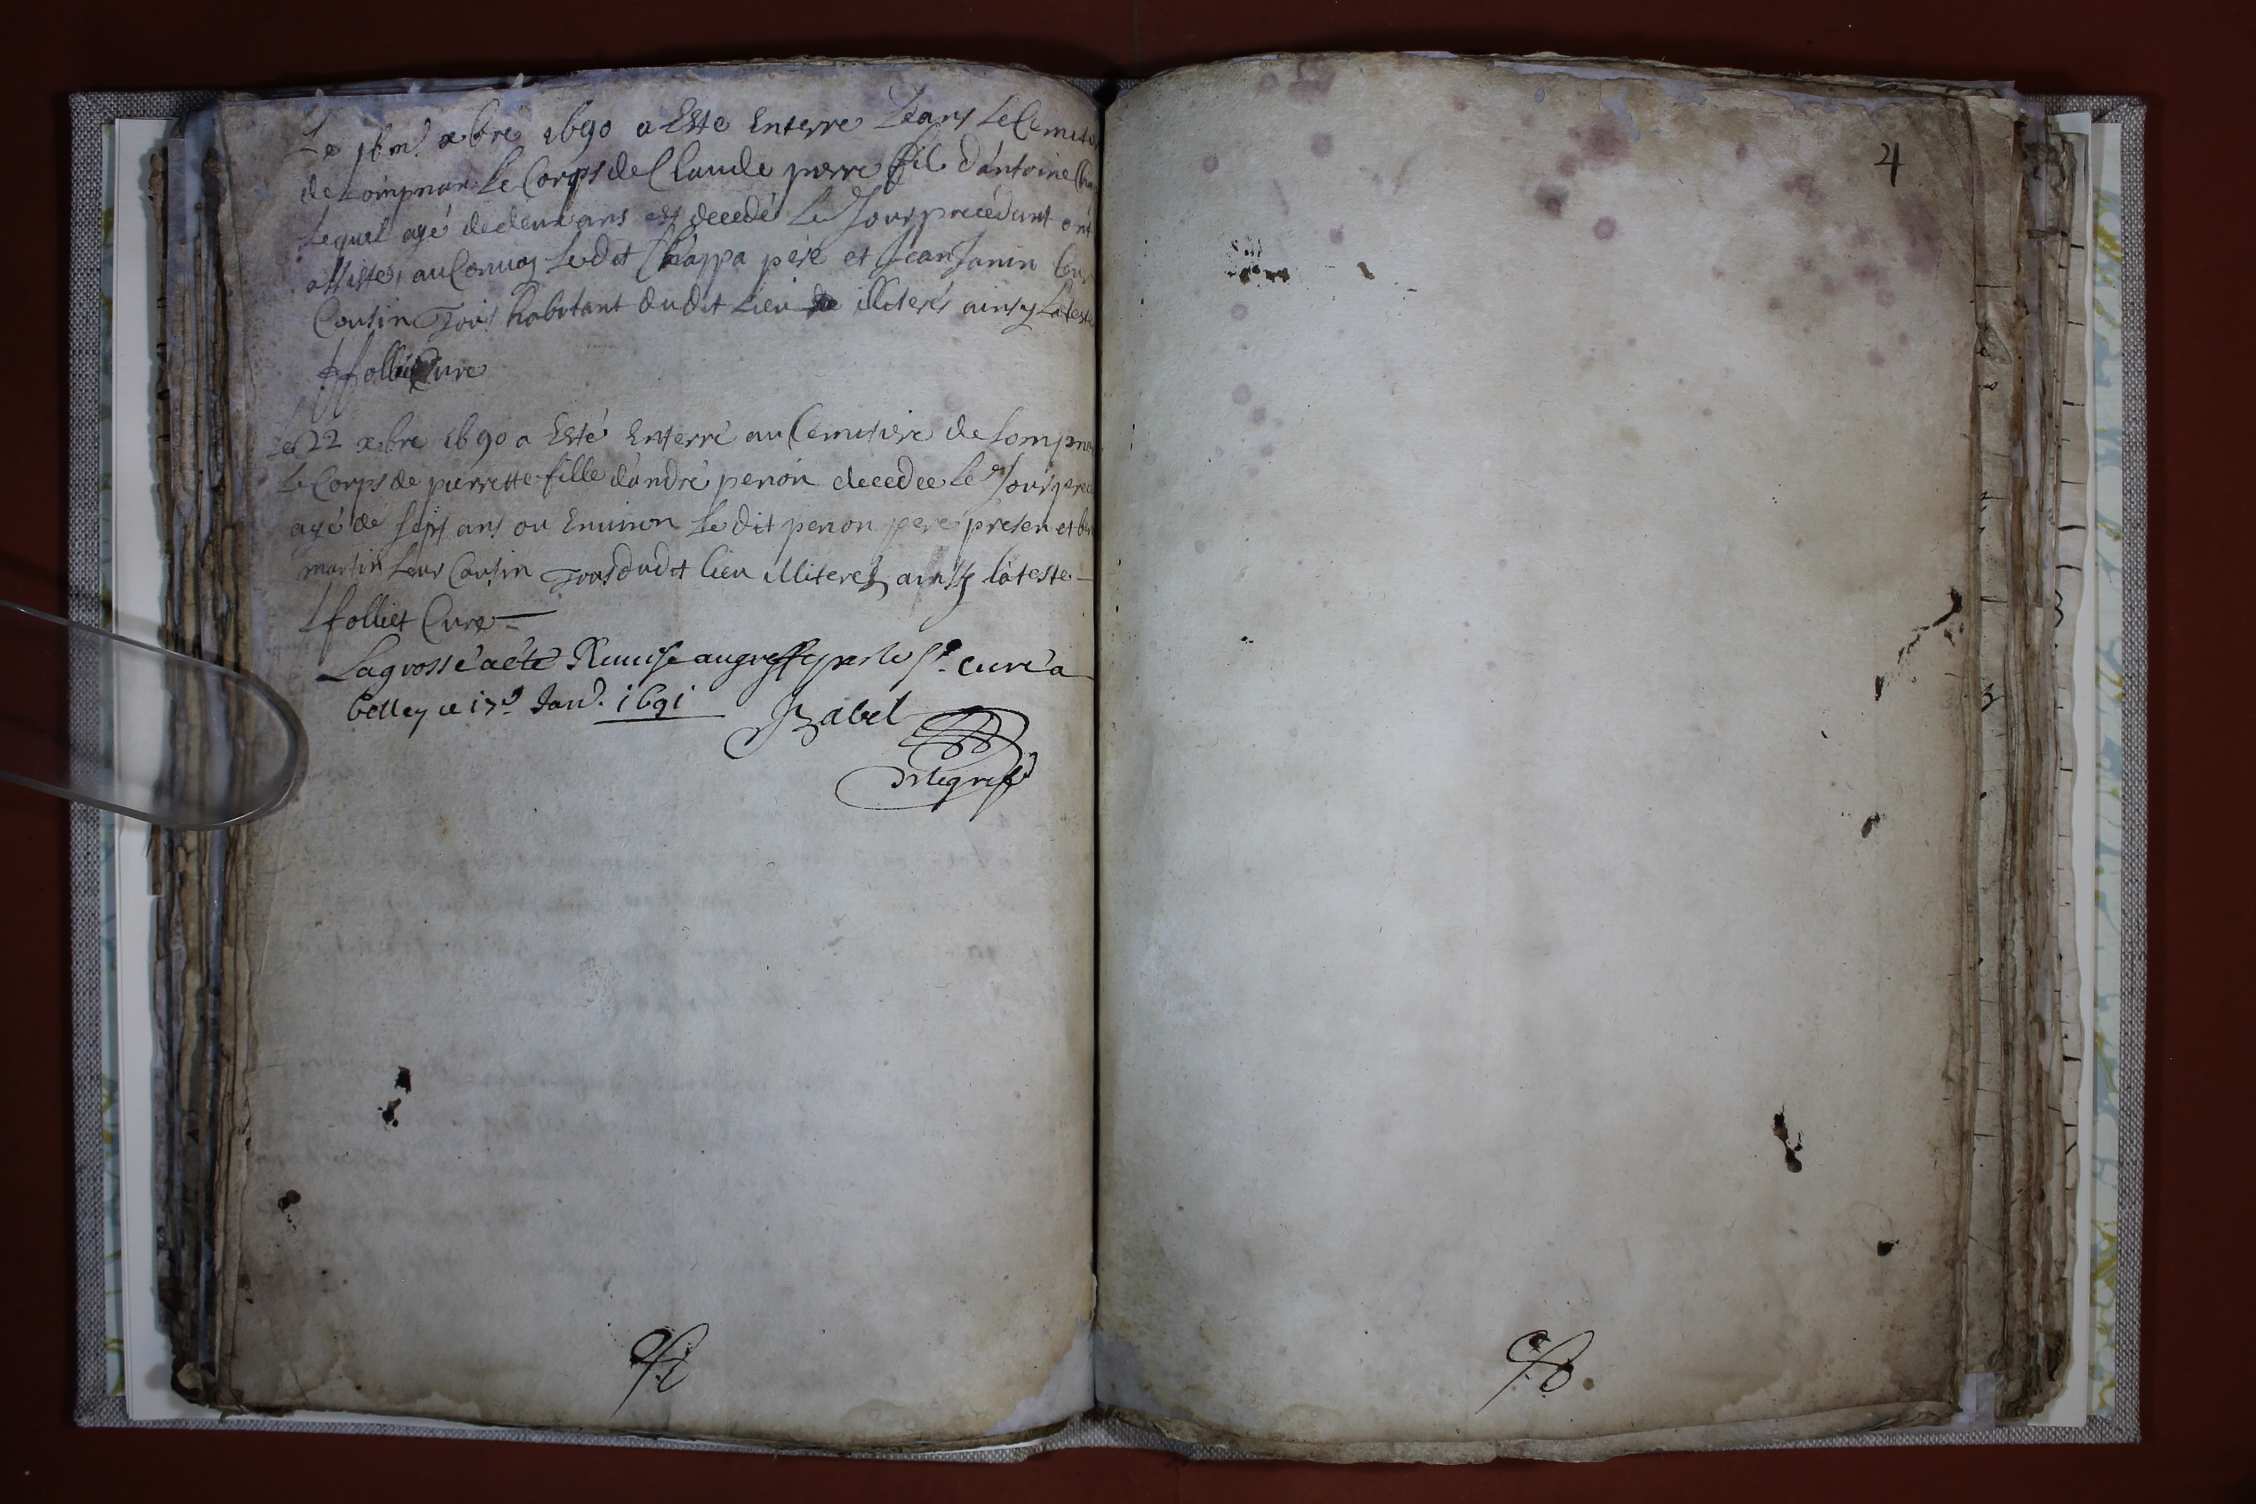 Le 16me xbre 1690 a Esté Enterré dans le Cemitie
de Lompnas Le Corps de Claude pierre fil d'antoine Cha
Lequel agé de deux ans est decedé Le Jour precedant ont
assistes au Convoy Ledit Chappa pere et Jean Janin leur
Cousin Tous habitant dudit Lieu illiterés ainsy L'ateste
folliet Curé
Le 22 xbre 1690 a Esté Enterré au Cemitiere de Lompna
Le Corps de pierrette fille d'andré penon decedee Le Jour prec
agé de sept ans ou Environ Le dit penon pere presen et
martin Leur Cousin Tous dudit lieu illiterés ainsy l'ateste
folliet Curé
La grosse a été Remise au greffe par le Sr. curé a
belley ce 17e Janv. 1691 Jzabel
greff
4